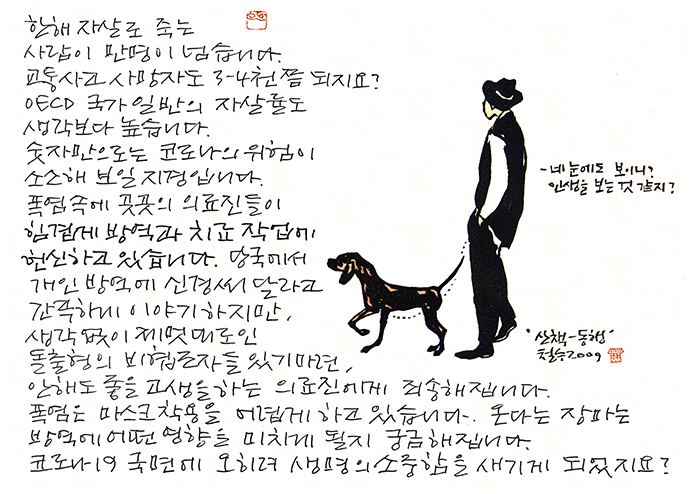 한해 자살로 죽는
사람이 만명이 넘습니다.
교통사고 사망자도 3-4천쯤 되지요?
OECD 국가 일반의 자살률도
생각보다 높습니다.
숫자만으로는 코로나의 위험이
소소해 보일 지경입니다.
폭염속에 곳곳의 의료진들이
힘겹게 방역과 치료 작업에
헌신하고 있습니다. 당국에서
개인 방역에 신경써 달라고
간곡하게 이야기하지만,
생각 없이 제멋대로인
돌출형의 비협조자들 있기마련,
안해도 좋을 고생을하는 의료진에게 죄송해집니다.
폭염은 마스크착용을 어렵게 하고 있습니다. 온다는 장마는
방역에 어떤 영향을 미치게 될지 궁금해집니다.
코로나19 국면에 오히려 생명의소중함을 새기게 되었지요?
-네 눈에도 보이니?
인생을 보는것 같지?
"산책-동행"
철수2009